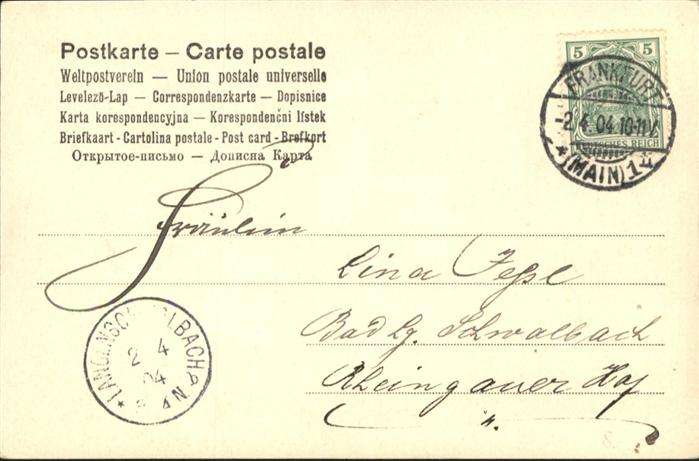 Postkarte — Carte postale
Weltpostverein — Union postale universelle
Levelező-Lap — Correspondenzkarte — Dopisnice
Karta korespondencyjna — Korespondenční lístek
Briefkaart - Cartolina postale - Post card - Brefkort
Открытое-письмо — Дописна Карта
5 5
DEUTSCHES REICH
FRANKFURT
-2.4.04.10-11V.
*(MAIN)1*
Fräulein
Lina
Bad Lg. Schwalbach
Rheingauer Hof
2 4
04